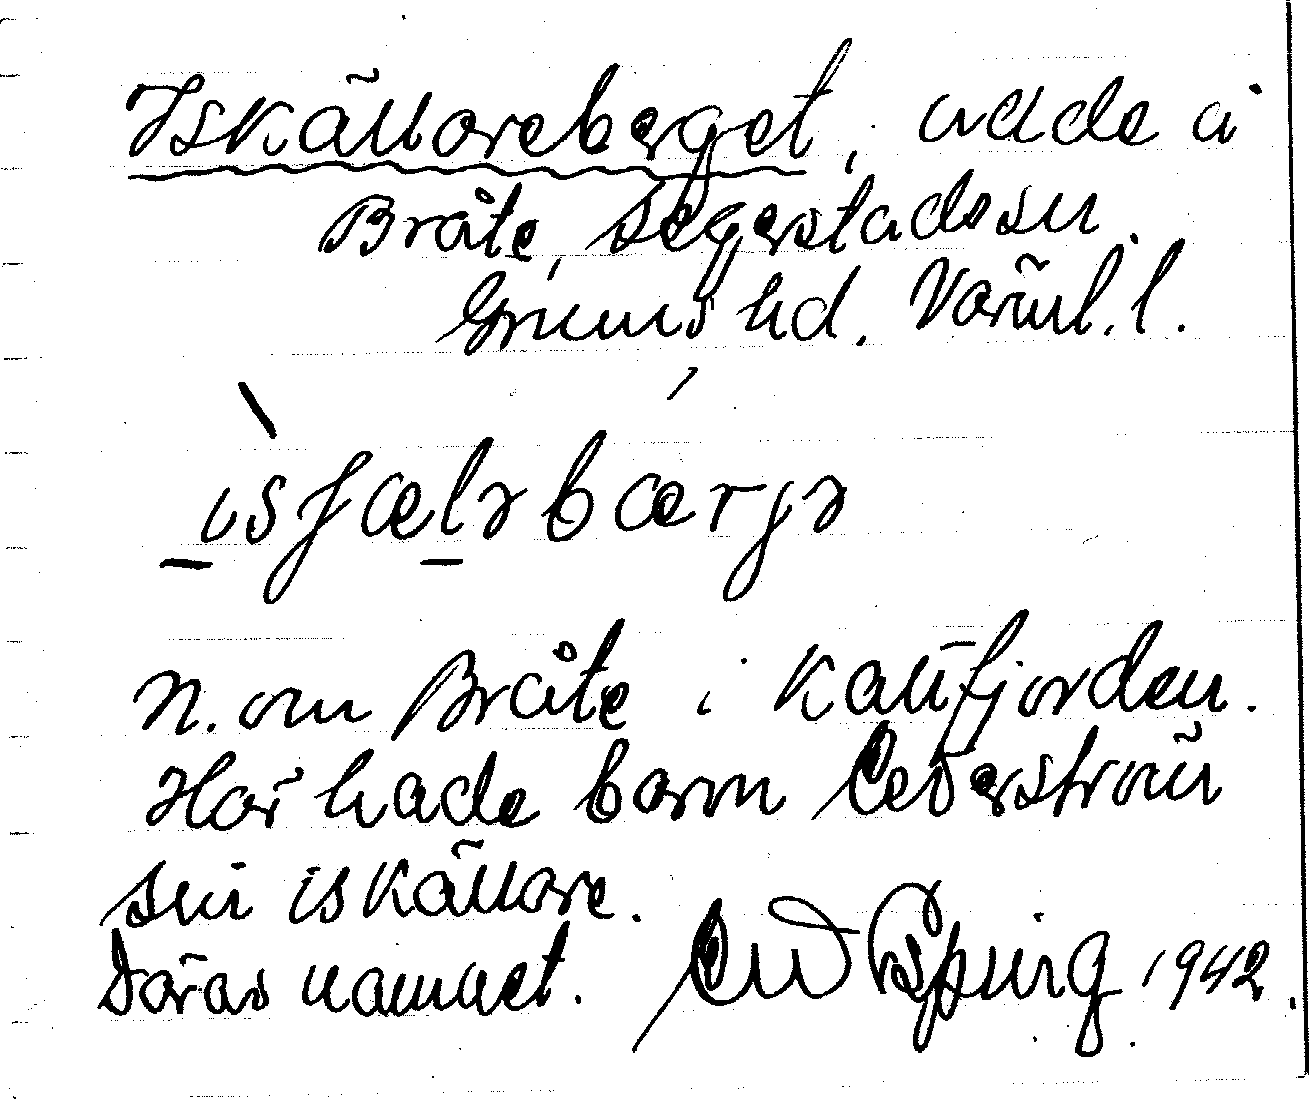 Iskällareberget, udde å
Bråte, Segerstads sn.
Grums hd. Värml. l.
isʃæləbærjə
N. om Bråte i Kattfjorden.
Här hade baron Cederström
sin iskällare.
Därav namnet. 1942.